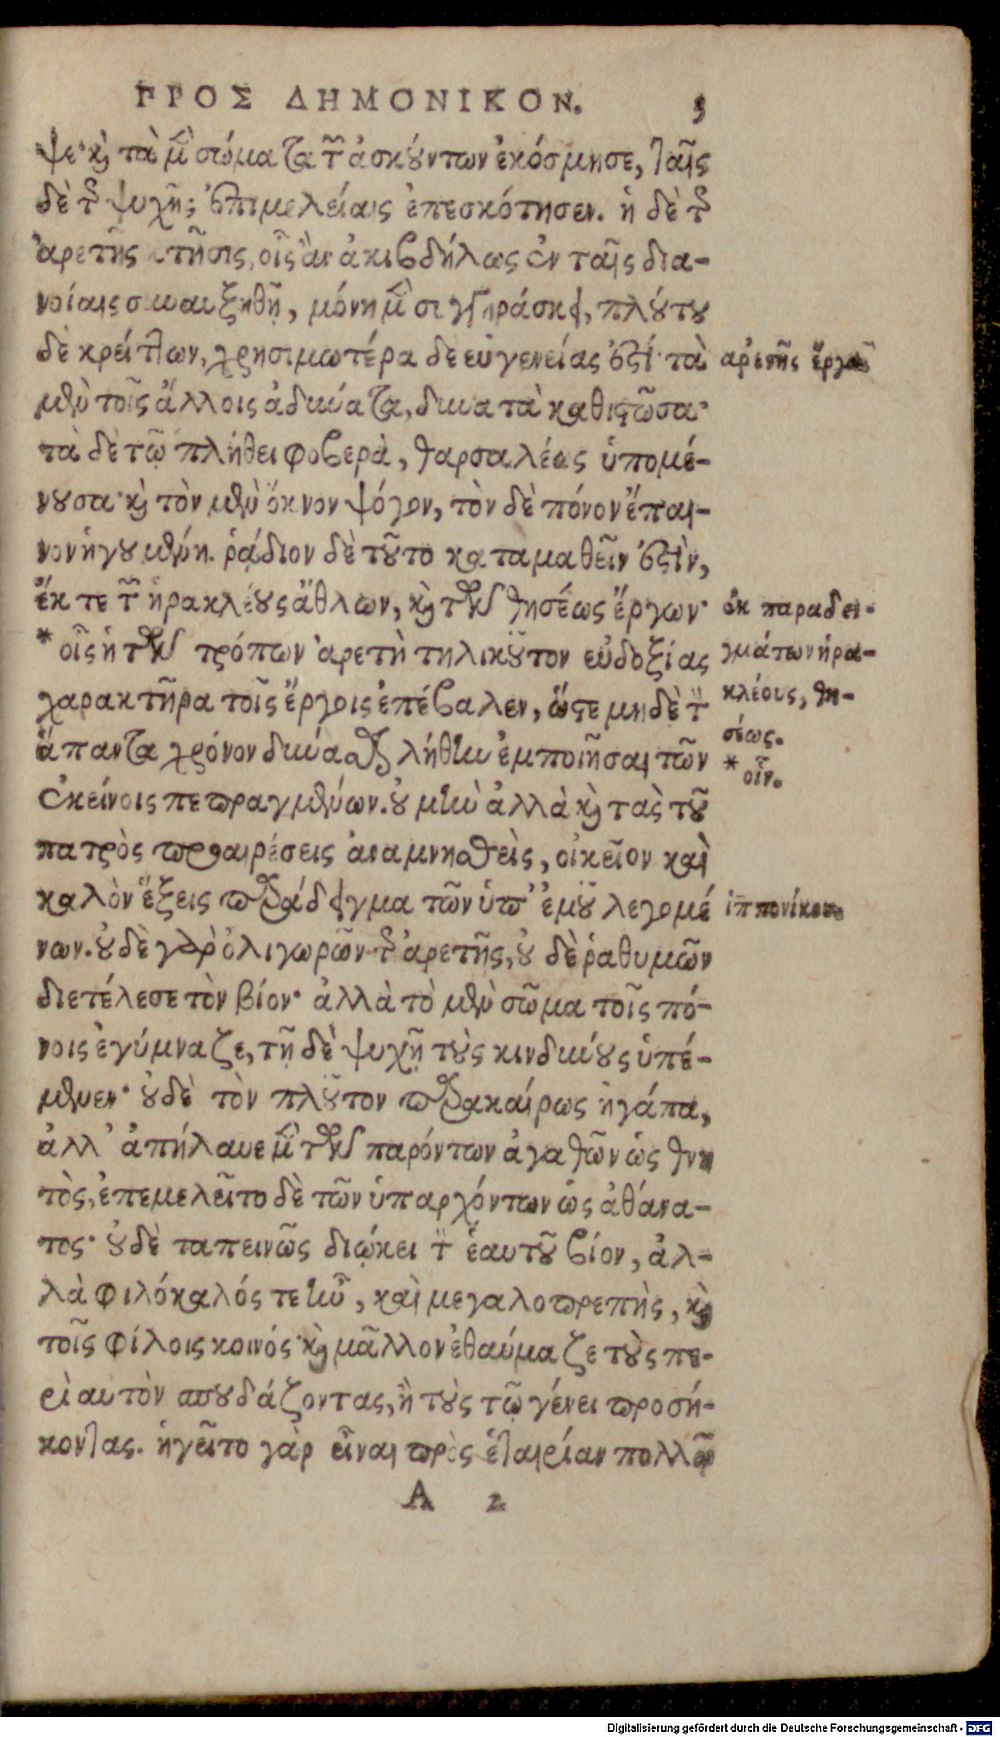 ΠΡΟΣ ΔΗΜΟΝΙΚΟΝ. 3
ψε· καὶ τὰ μὲν σώματα τῶν ἀσκούντων ἐκόσμησε, ταῖς
δὲ τῆς ψυχῆς ἐπιμελείαις ἐπεσκότησεν. ἡ δὲ τῆς
ἀρετῆς κτῆσις, οἷς ἂν ἀκιβδήλως ἐν ταῖς δια-
νοίαις συναυξηθῇ, μόνη μὲν συγγηράσκει, πλούτου
δὲ κρείττων, χρησιμωτέρα δὲ εὐγενείας ἐστί· τὰ
ἀρετῆς ἔργα
μὲν τοῖς ἄλλοις ἀδύνατα, δυνατὰ καθιστῶσα·
τὰ δὲ τῷ πλήθει φοβερὰ, θαρσαλέως ὑπομέ-
νουσα· καὶ τὸν μὲν ὄκνον ψόγον, τὸν δὲ πόνον ἔπαι-
νον ἡγουμένη. ῥᾴδιον δὲ τοῦτο καταμαθεῖν ἐστὶν,
ἔκ τε τῶν ἡρακλέους ἄθλων, καὶ τῶν θησέως ἔργων·
ἐκ παραδει-
* οἷς ἡ τῶν τρόπων ἀρετὴ τηλικοῦτον εὐδοξίας
γμάτων ἡρα-
χαρακτῆρα τοῖς ἔργοις ἐπέβαλεν, ὥστε μηδὲ τὸν
κλέους, θη-
σέως.
ἅπαντα χρόνον δύνασθαι λήθην ἐμποιῆσαι τῶν
* οἷν.
ἐκείνοις πεπραγμένων. οὐ μὴν ἀλλὰ καὶ τὰς τοῦ
πατρὸς προαιρέσεις ἀναμνησθεὶς, οἰκεῖον καὶ
καλὸν ἕξεις παράδειγμα τῶν ὑπ' ἐμοῦ λεγομέ
ἱππονίκου
νων. οὐδὲ γὰρ ὀλιγωρῶν τῆς ἀρετῆς, οὐδὲ ῥαθυμῶν
διετέλεσε τὸν βίον· ἀλλὰ τὸ μὲν σῶμα τοῖς πό-
νοις ἐγύμναζε, τῇ δὲ ψυχῇ τοὺς κινδύνους ὑπέ-
μενεν· οὐδὲ τὸν πλοῦτον παρακαίρως ἠγάπα,
ἀλλ' ἀπήλαυε μὲν τῶν παρόντων ἀγαθῶν ὡς θνη
τὸς, ἐπεμελεῖτο δὲ τῶν ὑπαρχόντων ὡς ἀθάνα-
τος· οὐδὲ ταπεινῶς διῴκει τὸν ἑαυτοῦ βίον, ἀλ-
λὰ φιλόκαλός τε ἦν, καὶ μεγαλοπρεπὴς, καὶ
τοῖς φίλοις κοινός· καὶ μᾶλλον ἐθαύμαζε τοὺς πε-
ρὶ αὐτὸν σπουδάζοντας, ἢ τοὺς τῷ γένει προσή-
κοντας. ἡγεῖτο γὰρ εἶναι πρὸς ἑταιρίαν πολλῷ
A 2
Digitalisierung gefördert durch die Deutsche Forschungsgemeinschaft - DFG